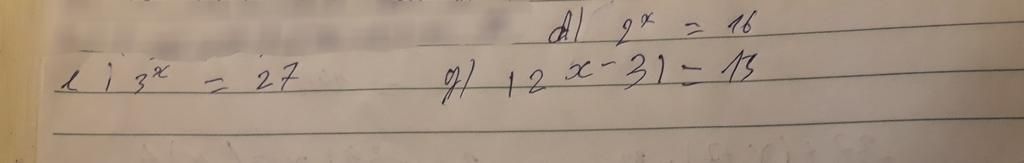 d) 2^x = 16
e) 3^x = 27 g) |2^x - 3| = 13